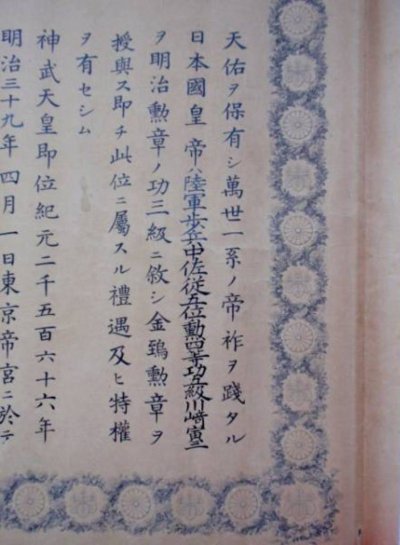 天佑ヲ保有シ萬世一系ノ帝祚ヲ踐タル
日本國皇帝ハ陸軍歩兵中佐従五位勲四等功五級川﨑寅二
ヲ明治勲章ノ功三級ニ敘シ金鵄勲章ヲ
授與ス即チ此位ニ屬スル禮遇及ヒ特權
ヲ有セシム
神武天皇即位紀元二千五百六十六年
明治三十九年四月一日東京帝宮ニ於テ